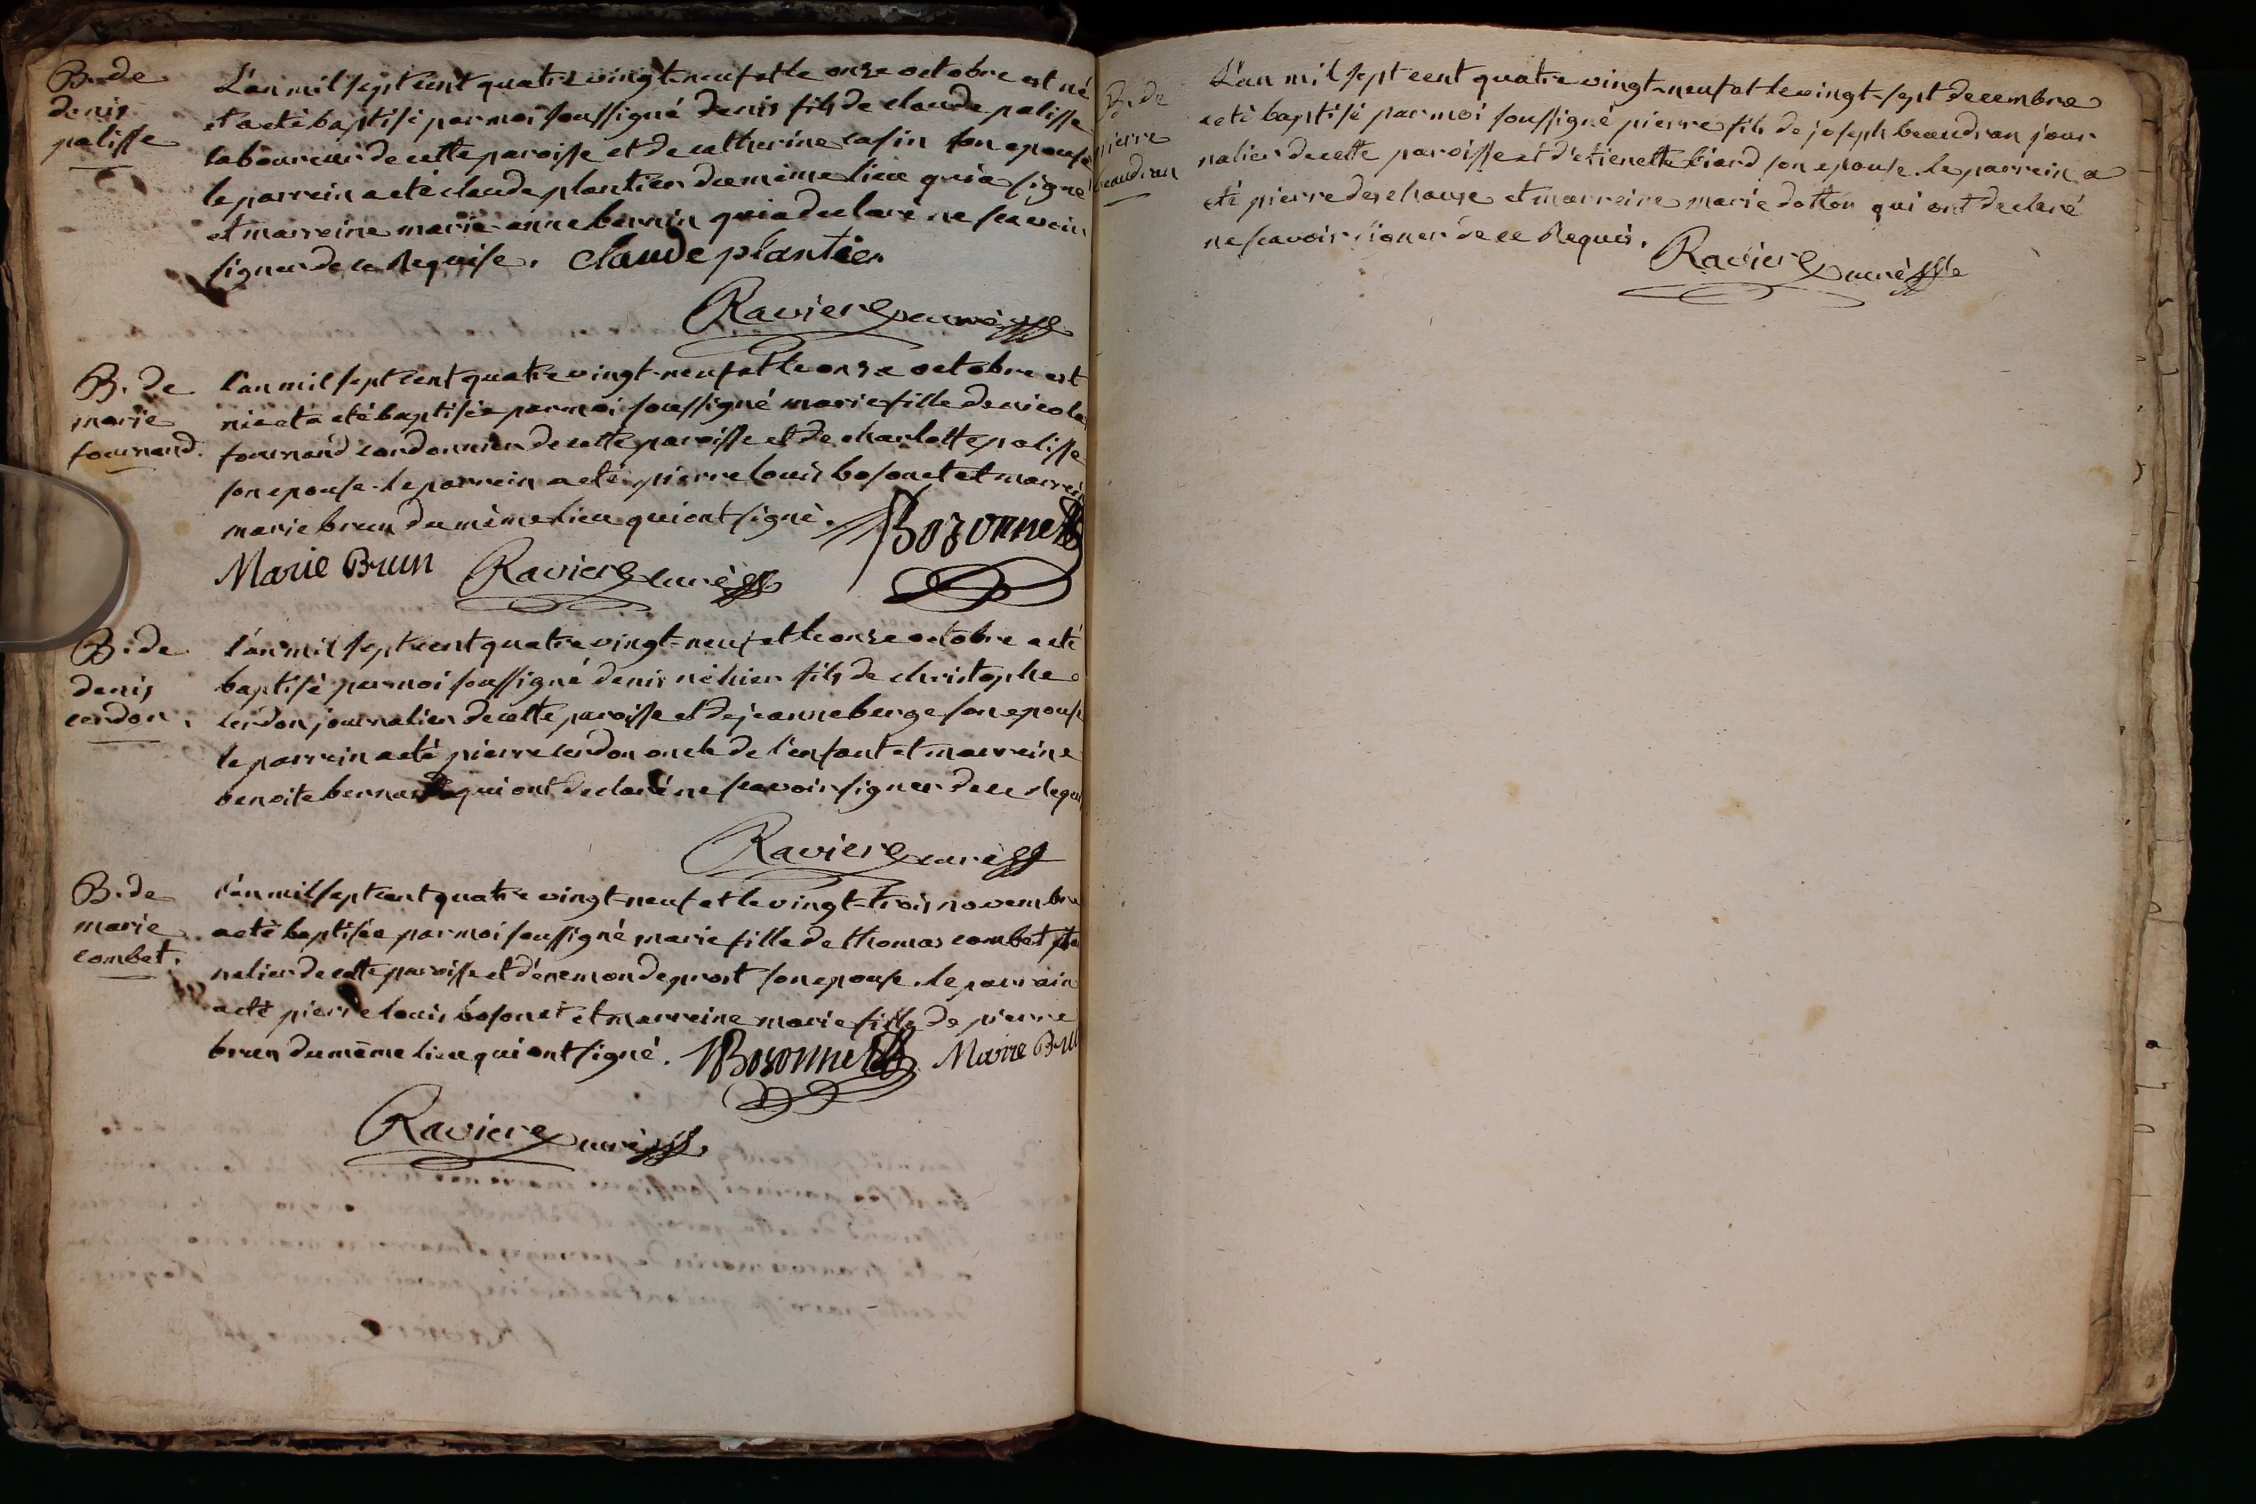 B. de
denis
palisse
L'an mil sept cent quatre vingt-neuf et le onze octobre est né
et a eté baptisé par moi soussigné denis fils de claude palisse
laboureur de cette paroisse et de catherine casin son epouse
le parrein a eté claude plantier du même lieu qui a signé
et marreine marie-anne bernin qui a declaré ne scavoir
signer de ce Requise. claude plantier
Raviere curé
B. de
marie
fournand.
L'an mil sept cent quatre vingt-neuf et le onze octobre est
née et a eté baptisée par moi soussigné marie fille de nicolas
fournand cordonnier de cette paroisse et de charlotte palisse
son epouse. le parrein a eté pierre louis bosonet et marrein
marie brun du même lieu qui ont signé. Bozonnet
Marie Brun Raviere curé
B. de
denis
cerdon.
L'an mil sept cent quatre vingt-neuf et le onze octobre a eté
baptisé par moi soussigné denis né hier fils de christophe
cerdon journalier de cette paroisse et de jeanne berge son epouse
le parrein a eté pierre cerdon oncle de l'enfant et marreine
benoite qui ont declaré ne scavoir signer de ce Requi
Raviere curé
B. de
marie
combet.
L'an mil sept cent quatre vingt-neuf et le vingt-trois novembre
a eté baptisée par moi soussigné marie fille de thomas combet
nalier de cette paroisse et d'enemonde prost son epouse. le parrain
a eté pierre louis bosonet et marreine marie fille de pierre
brun du même lieu qui ont signé. Bosonnet Marie Bru
Raviere curé
B. de
pierre
beaudran
L'an mil sept cent quatre vingt-neuf et le vingt-sept decembre
a eté baptisé par moi soussigné pierre fils de joseph beaudran jour
nalier de cette paroisse et d'etienette liard son epouse. le parrein a
eté pierre dechauxe et marreine marie dotton qui ont declaré
ne scavoir signer de ce Requis.
Raviere curé